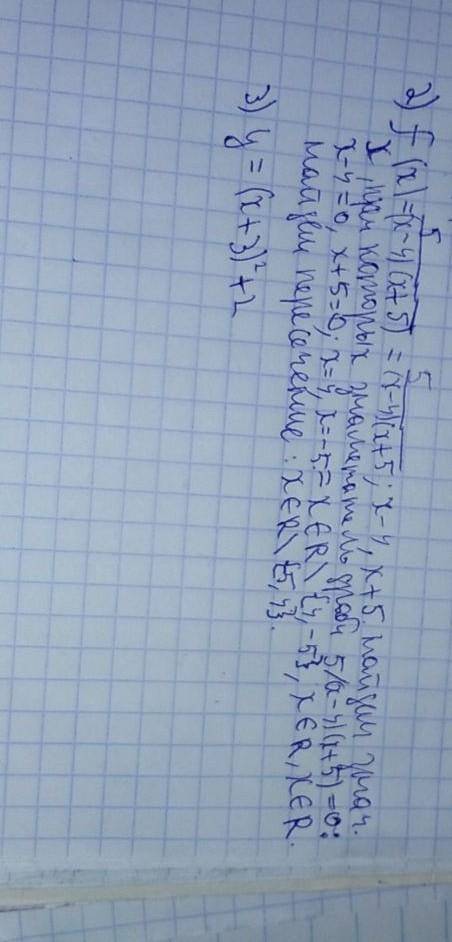 2) f(x) = 5/(x-4)(x+5) = 5/(x-4)(x+5; x-4, x+5. Найдем знач.
x, при которых знаменатель дроби 5/(x-4)(x+5) = 0:
x-4=0, x+5=0; x=4, x=-5 = x∈R\{4,-5}, x∈R, x∈R.
Найдем пересечение: x∈R\{-5,4}.
3) y = (x+3)²+2